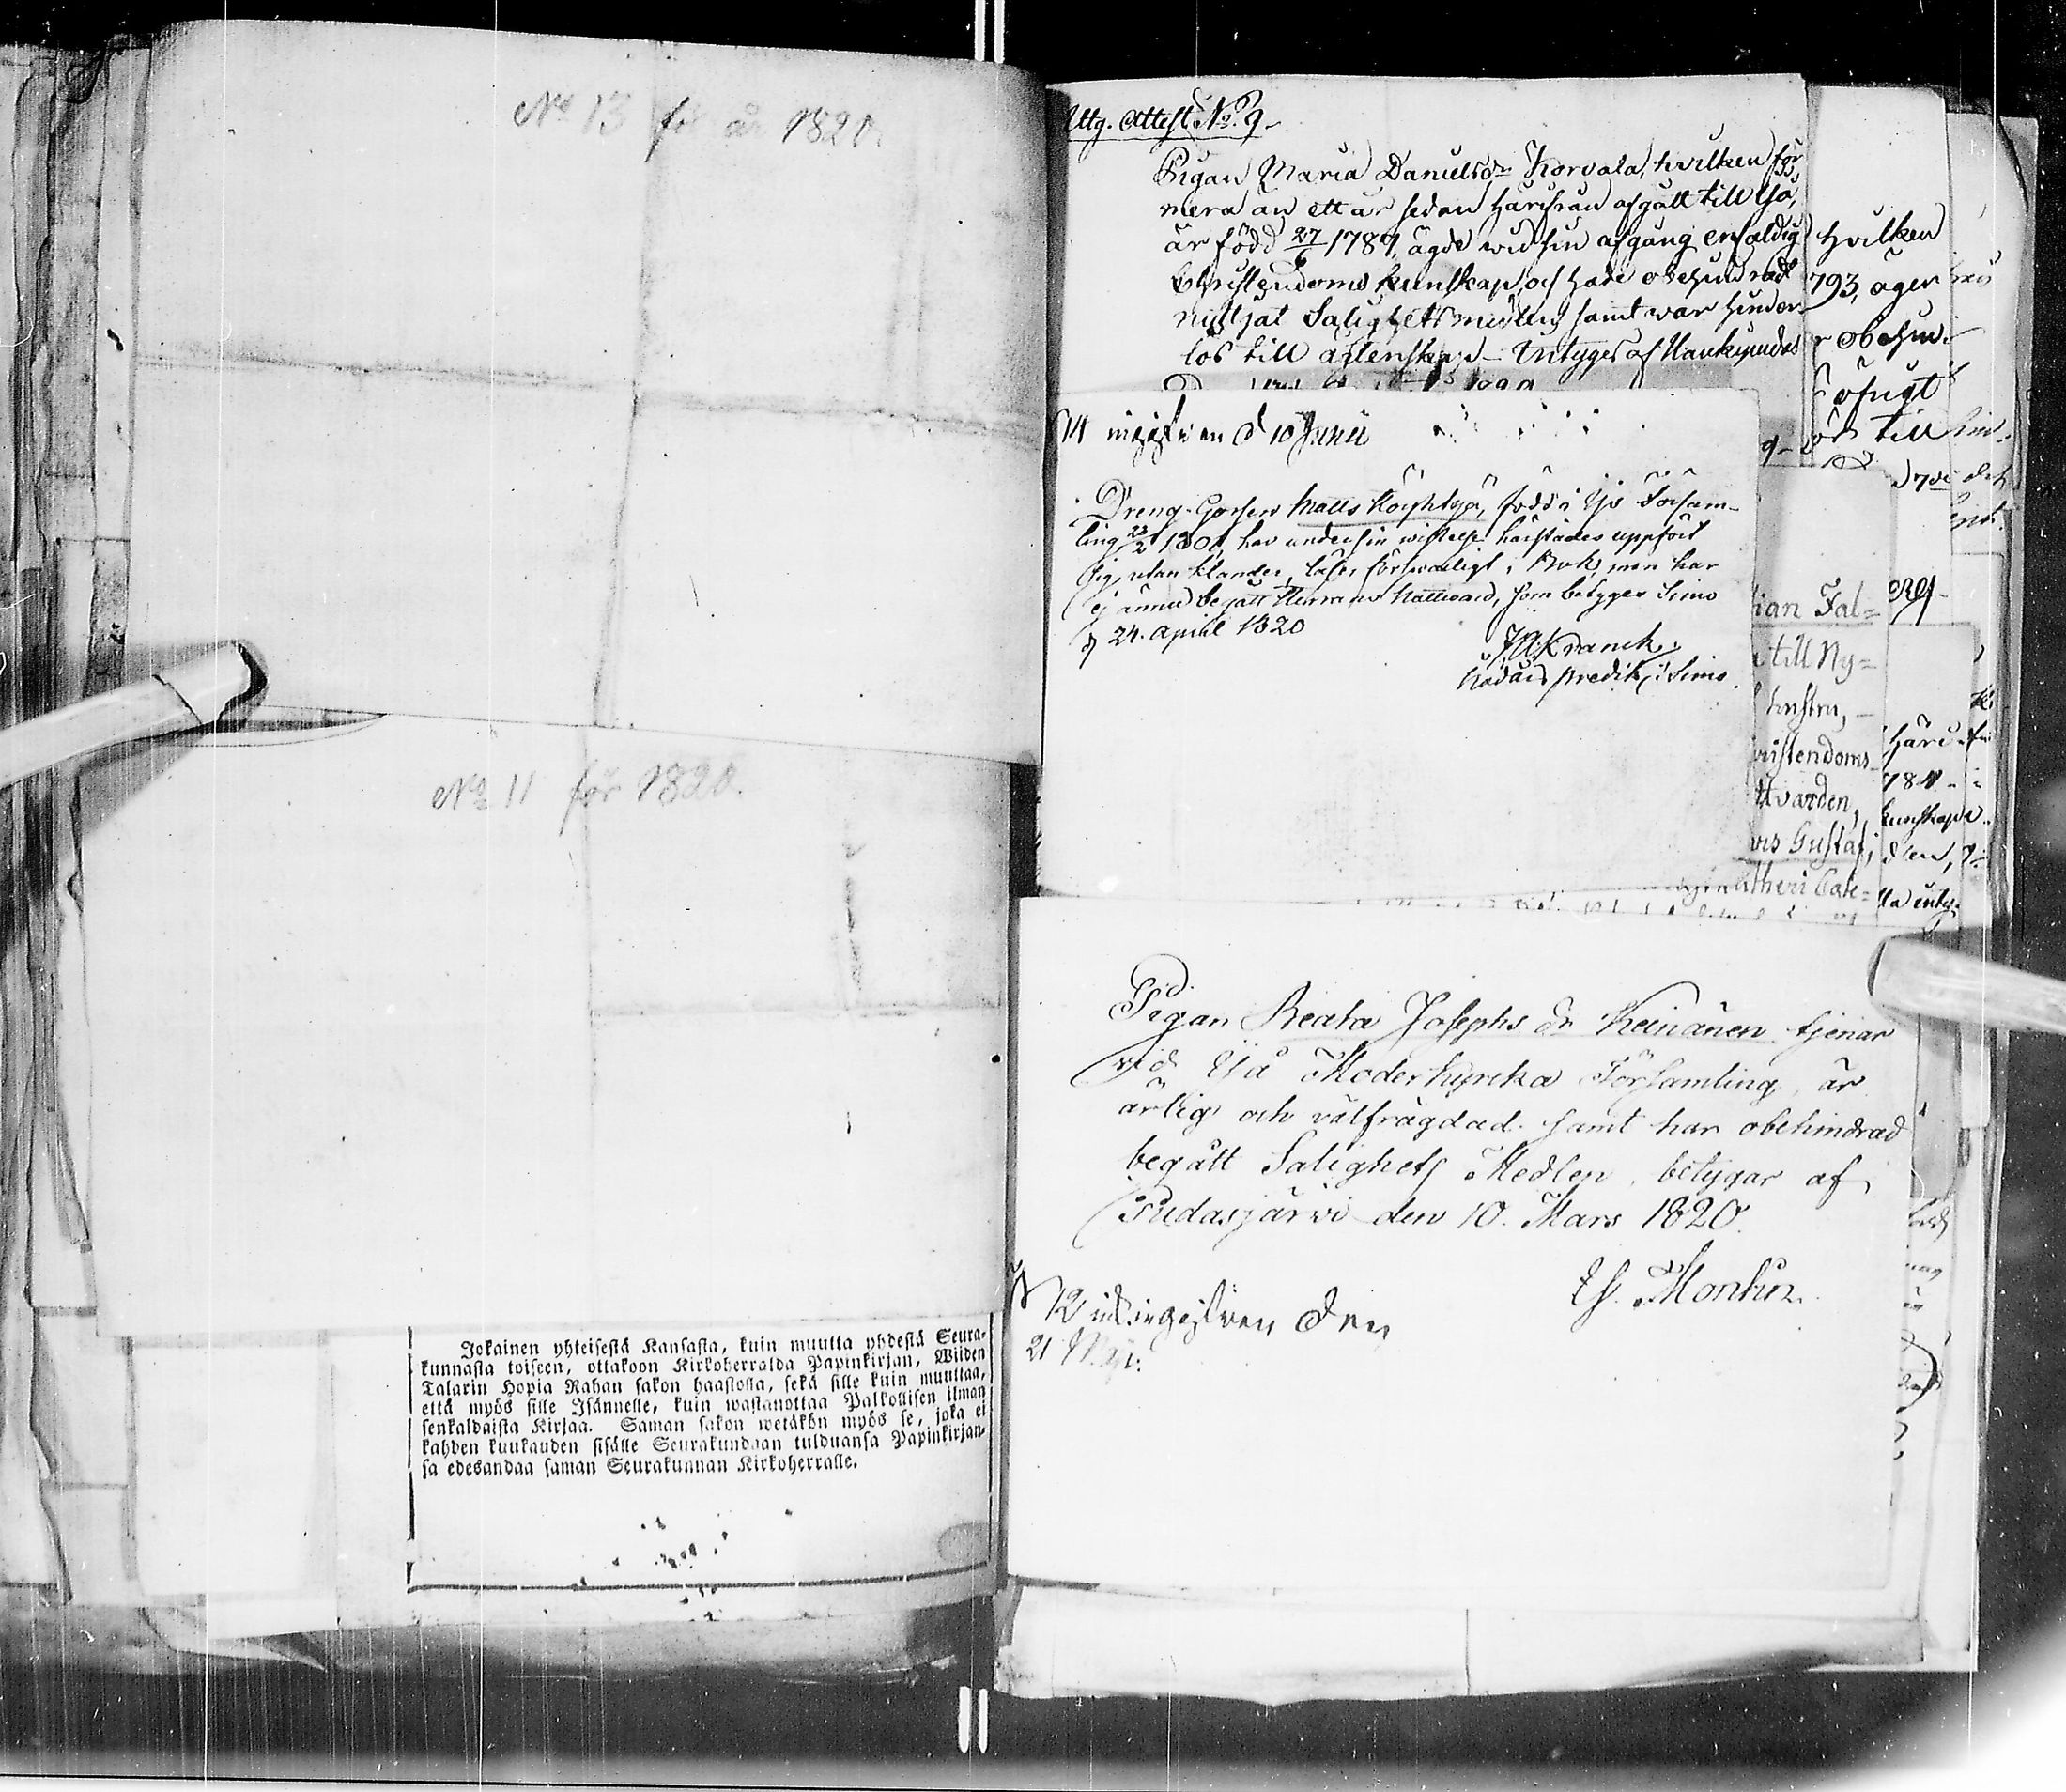 No 13 för år 1820.
No 11 för 1820.
Jokainen yhteisestä Kansasta, kuin muutta yhdestä Seura-
kunnasta toiseen, ottakoon Kirkoherralda Papinkirjan, Wiiden
Talarin Hopia Rahan sakon haastolla, sekä sille kuin muuttaa,
että myös sille Isännelle, kuin wastanottaa Palkollisen ilman
senkaldaista Kirjaa. Saman sakon wetäkön myös se, joka ei
kahden kuukauden sisälle Seurakundaan tulduansa Papinkirjan-
sa edesandaa saman Seurakunnan Kirkoherralle.
Utg. Attest No. 9
Pigan Maria Danielsdr Korvala, hvilken för
mera än ett år sedan härifrån afgått till Ijå,
är född 27/6 1787, ägde wid sin afgång enfaldig
Christendoms kunskap, och hade obehindradt
nyttjat Salighets medlen samt war hinder-
lös till äktenskap - Intyges af Haukipudas
14 d 10 Junii
Dreng-Gossen Matts, född i Ijo Försam-
ling 23/2 1801, har under sin wistelse härstädes uppfört
sig utan klander, läser försvarligt i Bok, men har
ej ännu begått Herrans Nattvard, som betyges Simo
d 24. April 1820
J. W. Kranck.
Nådårs predik. i Simo.
hvilken
793, äger
obehin-
ofugt
till
ian Fal=
till Ny=
hustru,
ristendoms-
ttvarden,
Gustaf,
theri Cate=
Häri
kunskap
Pigan Beata Josephs dr Keinänen tjenar
vid Ijå Moderkyrka Församling, är
ärlig och välfrägdad samt har obehindrad
begått Salighets Medlen, betygar af
Pudasjärvi den 10. Mars 1820.
Es. Montin.
12 den
21 Maji: